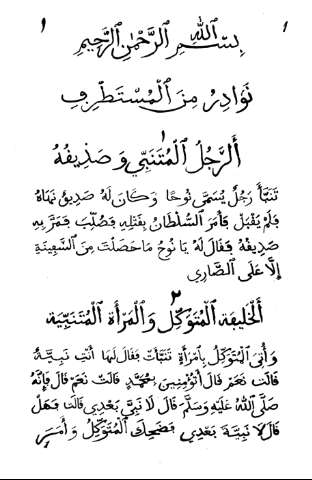 ١ 1
بِسْمِ اللّٰهِ الرَّحْمٰنِ الرَّحِيمِ
نَوَادِرُ مِنَ الْمُسْتَطْرَفِ
١
أَلرَّجُلُ الْمُتَنَبِّي وَصَدِيقُهُ
تَنَبَّأَ رَجُلٌ يُسَمَّى نُوحًا وَكَانَ لَهُ صَدِيقٌ نَهَاهُ
فَلَمْ يَقْبَلْ فَأَمَرَ السُّلْطَانُ بِقَتْلِهِ فَصُلِّبَ فَمَرَّ بِهِ
صَدِيقُهُ فَقَالَ لَهُ يَا نُوحُ مَا حَصَلْتَ مِنَ السَّفِينَةِ
إِلَّا عَلَى الصَّارِي
٢
أَلْخَلِيفَةُ الْمُتَوَكِّلُ وَالْمَرْأَةُ الْمُتَنَبِّيَةُ
وَأُتِيَ الْمُتَوَكِّلُ بِامْرَأَةٍ تَنَبَّأَتْ فَقَالَ لَهَا أَنْتِ نَبِيَّةٌ
قَالَتْ نَعَمْ قَالَ أَتُؤْمِنِينَ بِمُحَمَّدٍ قَالَتْ نَعَمْ قَالَ فَإِنَّهُ
صَلَّى اللّٰهُ عَلَيْهِ وَسَلَّمَ قَالَ لَا نَبِيَّ بَعْدِي قَالَتْ فَهَلْ
قَالَ لَا نَبِيَّةَ بَعْدِي فَضَحِكَ الْمُتَوَكِّلُ وَأَمَرَ